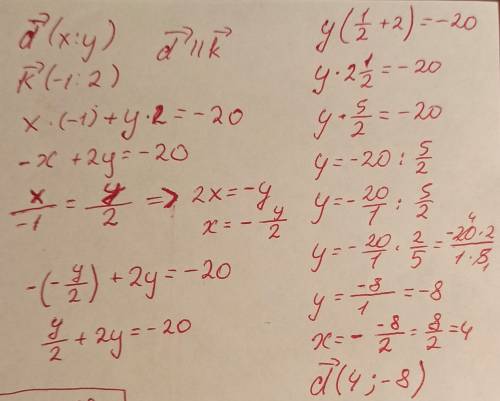 d⃗ (x:y) d⃗ || k⃗
k⃗ (-1:2)
x·(-1)+y·2=-20
-x+2y=-20
x/-1 = y/2 => 2x=-y
x=-y/2
-(-y/2)+2y=-20
y/2+2y=-20
y(1/2+2)=-20
y·2 1/2=-20
y·5/2=-20
y=-20:5/2
y=-20/1:5/2
y=-20/1·2/5=-20·2/1·5 4 1
y=-8/1=-8
x=--8/2=8/2=4
d⃗ (4;-8)